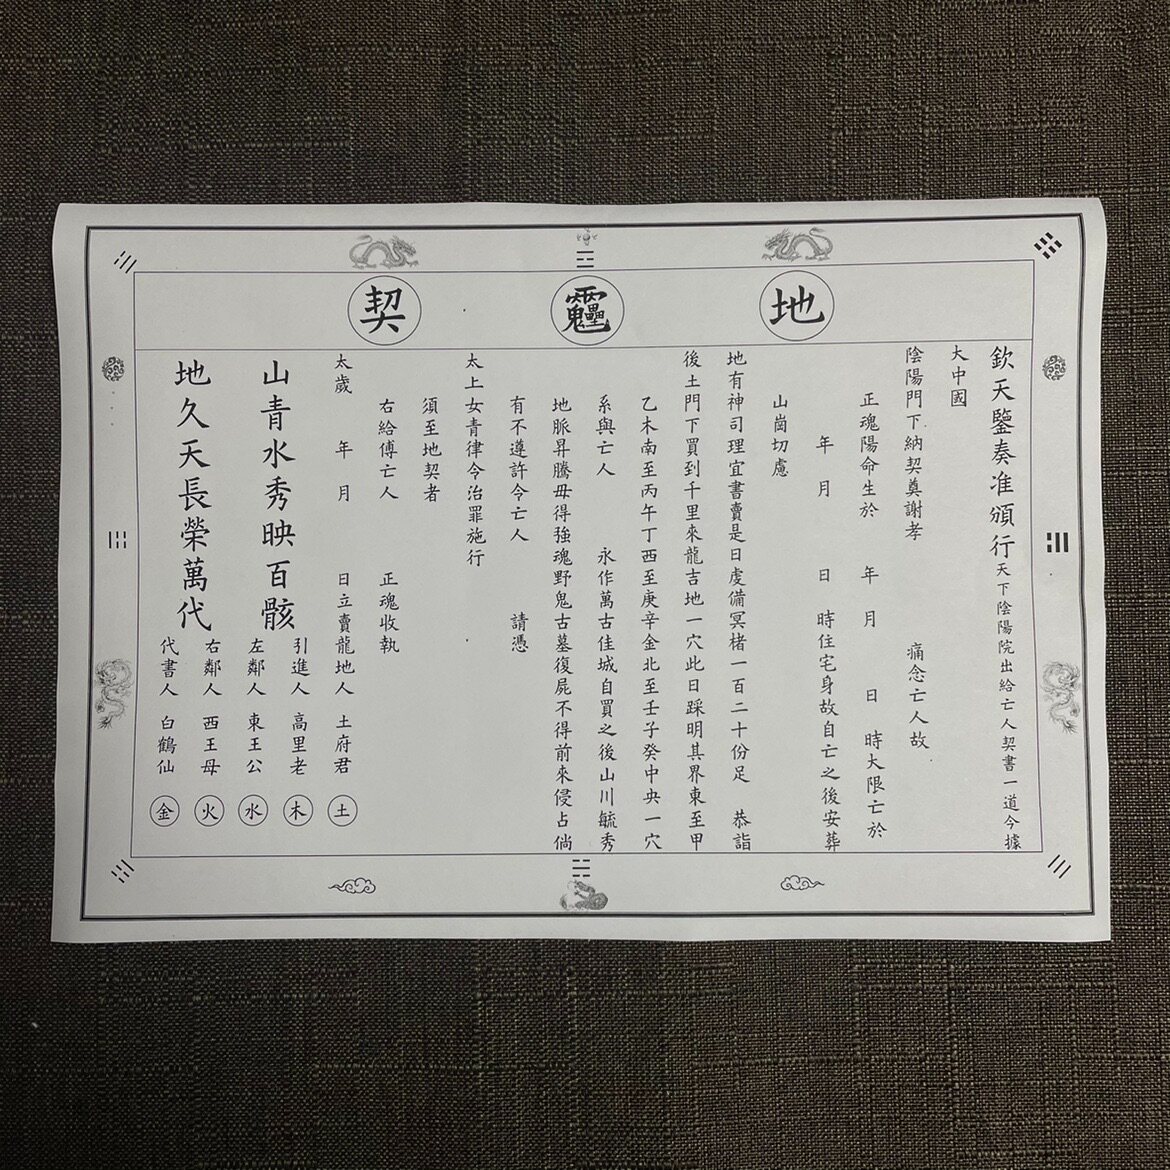 地
契
欽天鑒奏准頒行天下陰陽院出給亡人契書一道今據
大中國
陰陽門下納契奠謝孝 痛念亡人故
正魂陽命生於 年 月 日 時大限亡於
年 月 日 時住宅身故自亡之後安葬
山崗切慮
地有神司理宜書賣是日虔備冥楮一百二十份足 恭詣
後土門下買到千里來龍吉地一穴此日踩明其界東至甲
乙木南至丙午丁西至庚辛金北至壬子癸中央一穴
系與亡人 永作萬古佳城自買之後山川毓秀
地脈昇騰毋得強魂野鬼古墓復屍不得前來侵占倘
有不遵許令亡人 請憑
太上女青律令治罪施行
須至地契者
右給傅亡人 正魂收執
太歲 年 月 日立賣龍地人 土府君 土
引進人 高里老 木
山青水秀映百骸
左鄰人 東王公 水
右鄰人 西王母 火
地久天長榮萬代
代書人 白鶴仙 金